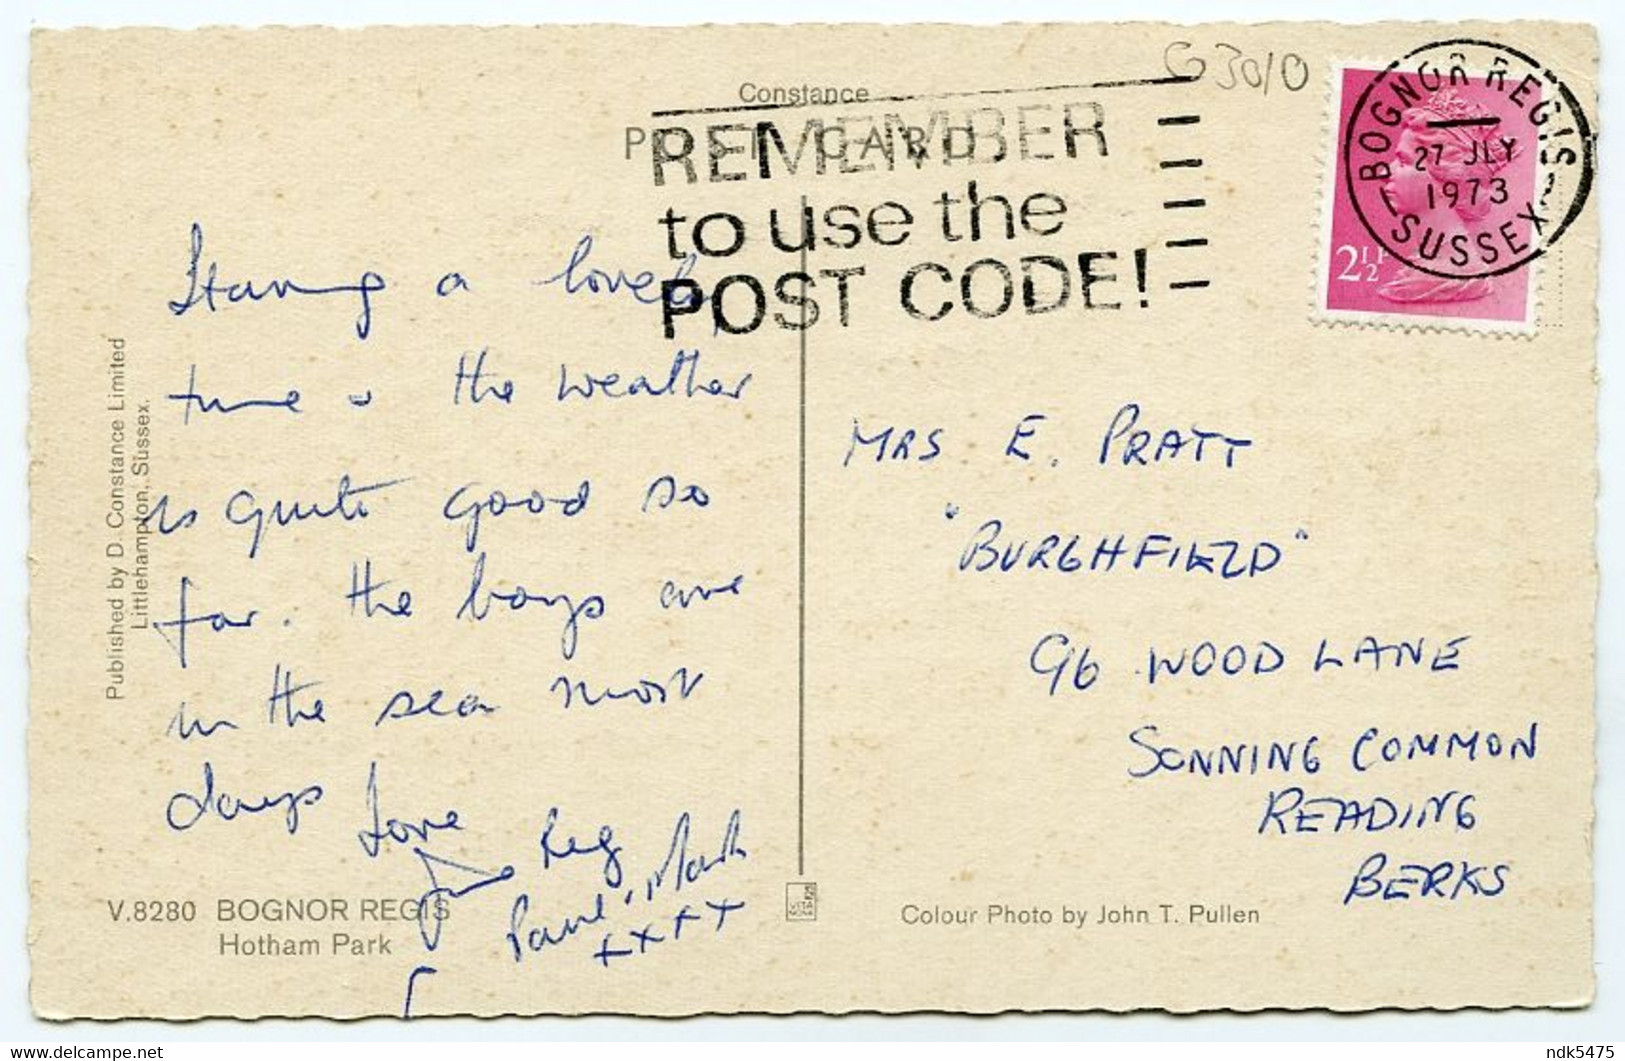 G3010
Constance
POST CARD
REMEMBER
to use the
POST CODE!
BOGNOR REGIS
27 JLY
1973
SUSSEX
2½P
Having a lovely
time & the weather
is quite good so
far. The boys are
in the sea most
days Love
Reg
Paul & Mark
xxxx
MRS E. PRATT
"BURGHFIELD"
96 WOOD LANE
SONNING COMMON
READING
BERKS
Published by D. Constance Limited
Littlehampton, Sussex.
V.8280 BOGNOR REGIS
Hotham Park
Colour Photo by John T. Pullen
delcampe.net
ndk5475